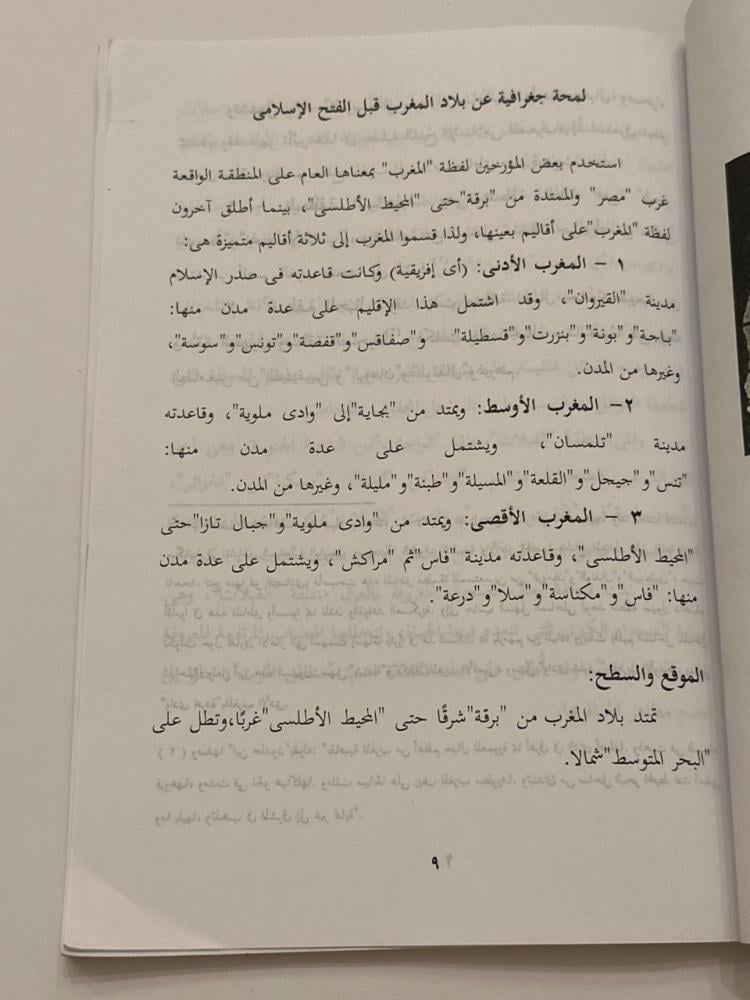 لمحة جغرافية عن بلاد المغرب قبل الفتح الإسلامى
استخدم بعض المؤرخين لفظة "المغرب" بمعناها العام على المنطقة الواقعة
غرب "مصر" والممتدة من "برقة"حتى "المحيط الأطلسى"، بينما أطلق آخرون
لفظة "المغرب"على أقاليم بعينها، ولذا قسموا المغرب إلى ثلاثة أقاليم متميزة هى:
١ – المغرب الأدنى: (أى إفريقية) وكانت قاعدته فى صدر الإسلام
مدينة "القيروان"، وقد اشتمل هذا الإقليم على عدة مدن منها:
"باجة"و"بونة"و"بنزرت"و"قسطيلة" و"صفاقس"و"قفصة"و"تونس"و"سوسة"،
وغيرها من المدن.
٢– المغرب الأوسط: ويمتد من "بجاية"إلى "وادى ملوية"، وقاعدته
مدينة "تلمسان"، ويشتمل على عدة مدن منها:
"تنس"و"جيجل"و"القلعة"و"المسيلة"و"طبنة"و"مليلة"، وغيرها من المدن.
٣ – المغرب الأقصى: ويمتد من "وادى ملوية"و"جبال تازا"حتى
"المحيط الأطلسى"، وقاعدته مدينة "فاس"ثم "مراكش"، ويشتمل على عدة مدن
منها: "فاس"و"مكناسة"و"سلا"و"درعة".
الموقع والسطح:
تمتد بلاد المغرب من "برقة"شرقًا حتى "المحيط الأطلسى"غربًا،وتطل على
"البحر المتوسط"شمالا.
٩